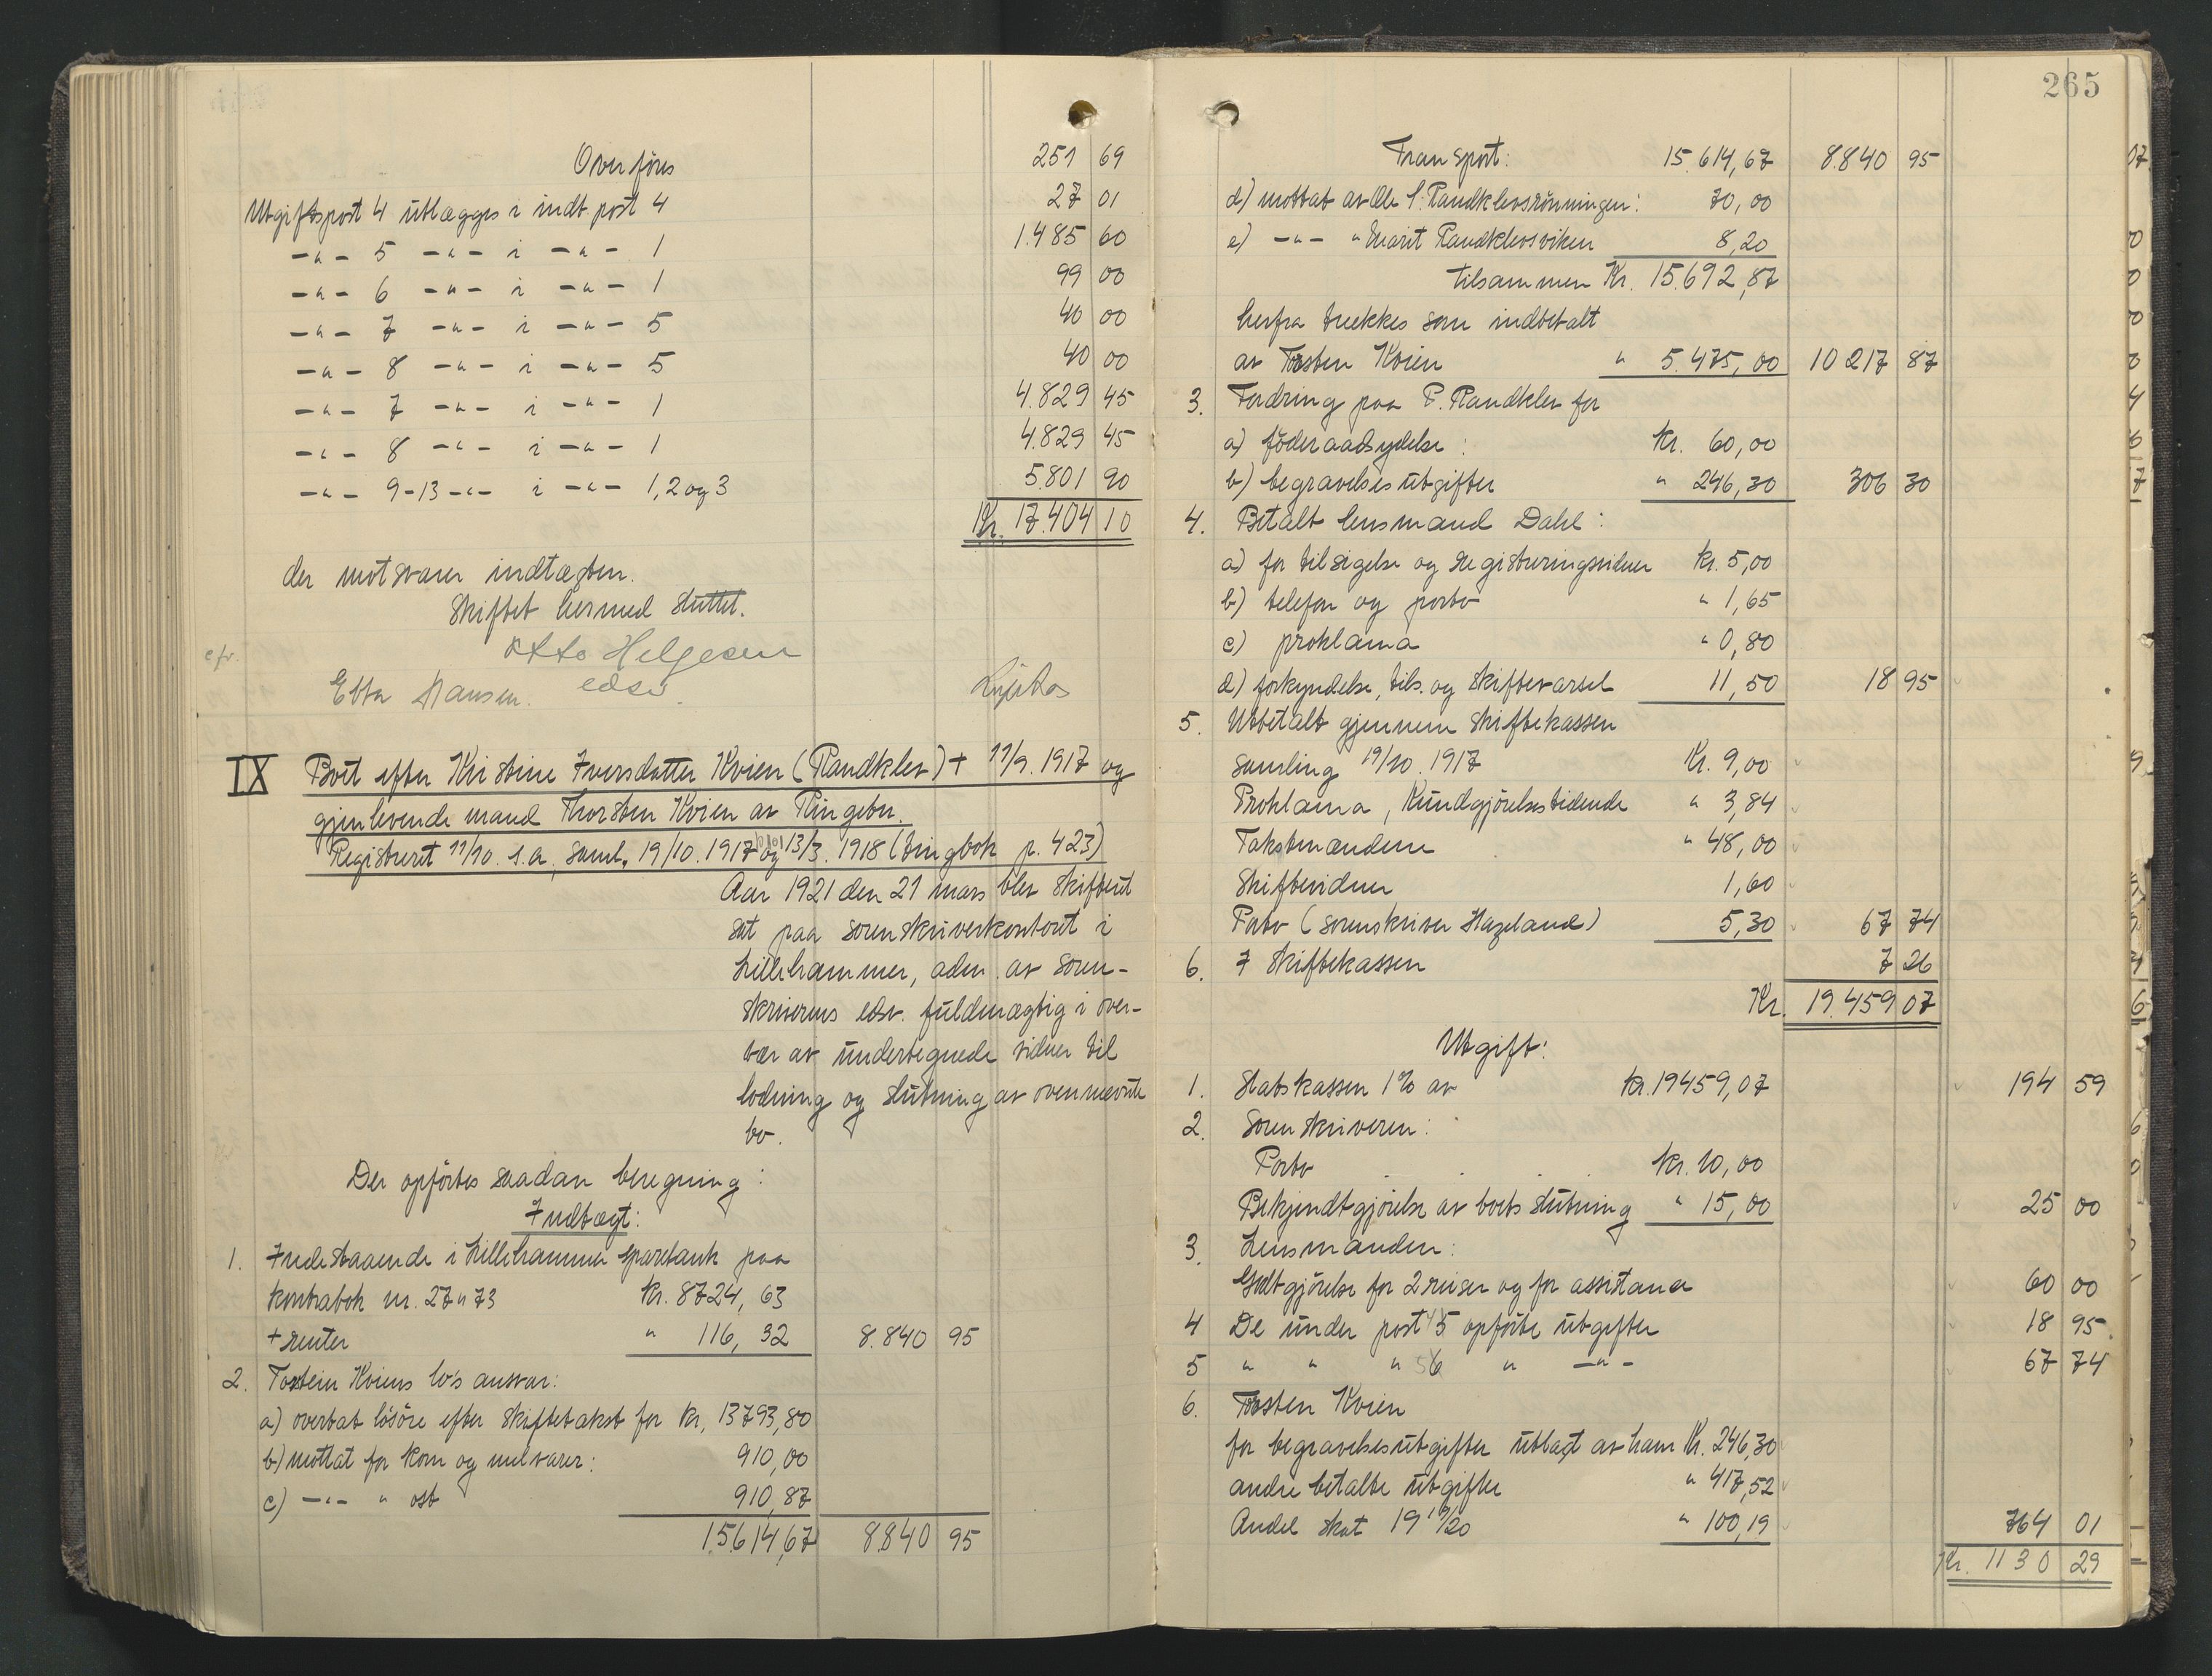 Overføres 251 69
Utgiftspost 4 utlægges i indt post 4 27 01
-"- 5 -"- i -"- 1 1.485 60
-"- 6 -"- i -"- 1 99 00
-"- 7 -"- i -"- 5 40 00
-"- 8 -"- i -"- 5 40 00
-"- 7 -"- i -"- 1 4.829 45
-"- 8 -"- i -"- 1 4.829 45
-"- 9-13 -"- i -"- 1, 2 og 3 5.801 90
Kr. 17.404 10
der motsvarer indtægten.
Skiftet hermed sluttet.
Otto Helgesen
cfr.
Ebba Hansen. edsv.
IX Boet efter Kristine Iversdatter Kvien (Randklev) + 11/9. 1917 og
gjenlevende mand Thorsten Kvien av Ringebu.
Registreret 11/10. s.a., saml. 19/10. 1917 og 13/3. 1918 (tingbok p. 423)
Aar 1921 den 21 mars blev skifteret
sat paa sorenskriverkontoret i
Lillehammer, adm. av soren-
skriverens edsv. fuldmægtig i over-
vær av undertegnede vidner til
lodning og slutning av ovennævnte
bo.
Der opførtes saadan beregning:
Indtægt:
1. Indestaaende i Lillehammer Sparebank paa
kontrabok nr. 27"73 kr. 8724,63
+ renter " 116,32 8.840 95
2. Torstein Kviens bo's ansvar:
a) overtat løsøre efter skiftetakst for kr. 13793,80
b) mottat for korn og melvarer: 910,00
c) -"- " ost 910,87
15614,67 8840 95
265
Transport: 15.614,67 8.840 95
d) mottat av Ole P. Randklevsrønningen: 70,00
e) -"- " Marit Randklevsviken 8,20
tilsammen Kr. 15.692,87
herfra trækkes som indbetalt
av Torsten Kvien " 5.475,00 10217 87
3. Fordring paa P. Randklev for
a) føderaadsydelse: Kr. 60,00
b) begravelsesutgifter " 246,30 306 30
4. Betalt lensmand Dahl:
a) for tilsigelse og registreringsvidner kr. 5,00
b) telefon og porto " 1,65
c) proklama " 0,80
d) forkyndelse, tils. og skiftevarsel 11,50 18 95
5. Utbetalt gjennem skiftekassen
samling 19/10. 1917 Kr. 9,00
Proklama, Kundgjørelsestidende " 3,84
Takstmændene " 48,00
Skiftevidner 1,60
Porto (sorenskriver Hazeland) 5,30 67 74
6. I skiftekassen 7 26
Kr. 19.459 07
Utgift:
1. Statskassen 1% av kr. 19459,07 194 59
2. Sorenskriveren:
Porto . . . . kr. 10,00
Bekjendtgjørelse av boets slutning " 15,00 25 00
3. Lensmanden:
Godtgjørelse for 2 reiser og for assistance 60 00
4 De under post 4 5 opførte utgifter 18 95
5 " " " 5 6 " -"- 67 74
6. Torsten Kvien
for begravelsesutgifter utlagt av ham Kr. 246,30
andre betalte utgifter " 417,52
Andel skat 19 19/20 " 100,19 764 01
Kr. 1130 29